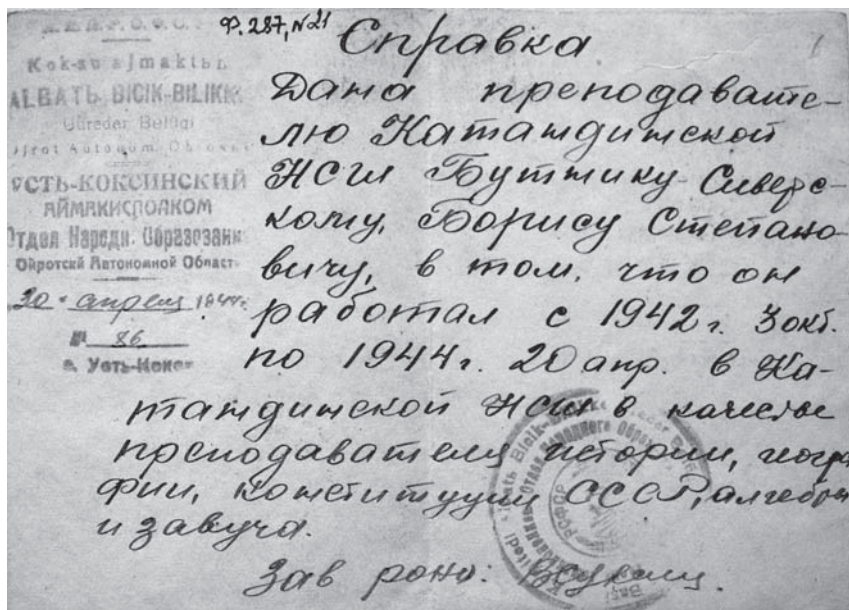 Ф. 287, №21
1
Справка
Kok-su ajmaktьŋ
ALBATЬ BICIK-BILIK
Üüreder Bөlügi
Ojrot Autonom Oblas
УСТЬ-КОКСИНСКИЙ
АЙМАКИСПОЛКОМ
Отдел Народн. Образован
Ойротской Автономной Област
20 " апреля 1944г.
№ 86
с. Усть-Кокса
Дана преподавате-
лю Катандинской
НСШ Бутнику-Сиверс-
кому, Борису Степано-
вичу, в том, что он
работал с 1942 г. 3 окт.
по 1944 г. 20 апр. в Ка-
тандинской НСШ в качестве
преподавателя истории, геогра
фии, конституции СССР, алгебры
и завуча.
Зав роно:
РСФСР